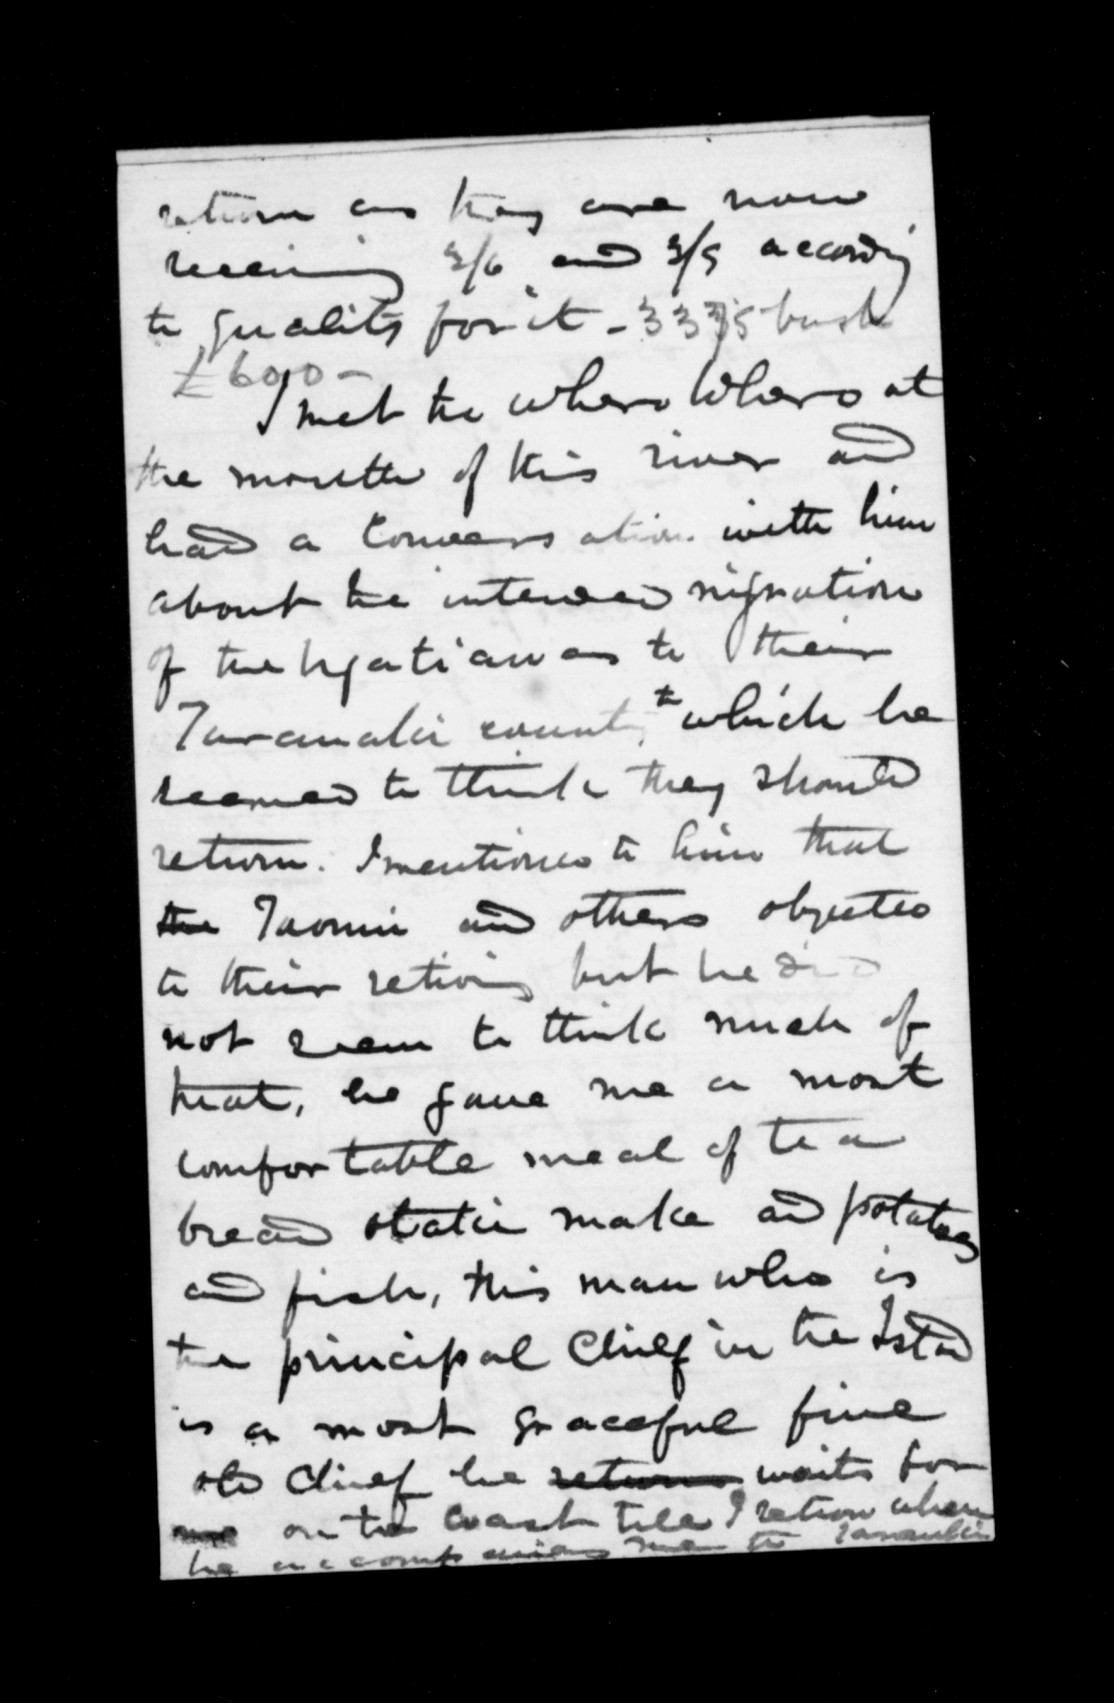 return as they are now
receiving 3/6 and 3/9 according
to quality for it - 3375 bush
£600 -
I met the whero Whero at
the mouth of this river and
had a Conversation with him
about the intended migration
of the Ngatiawas to their
Taranaki country to which he
seemed to think they should
return. I mentioned to him that
the Taonui and others objected
to their retiring but he did
not seem to think much of
that, he gave me a most
comfortable meal of tea
bread make and potatoes
and fish, this man who is
the principal Chief in the Island
is a most graceful fine
old Chief he returns waits for
me on the Coast till I return when
he accompanies me to Taranaki